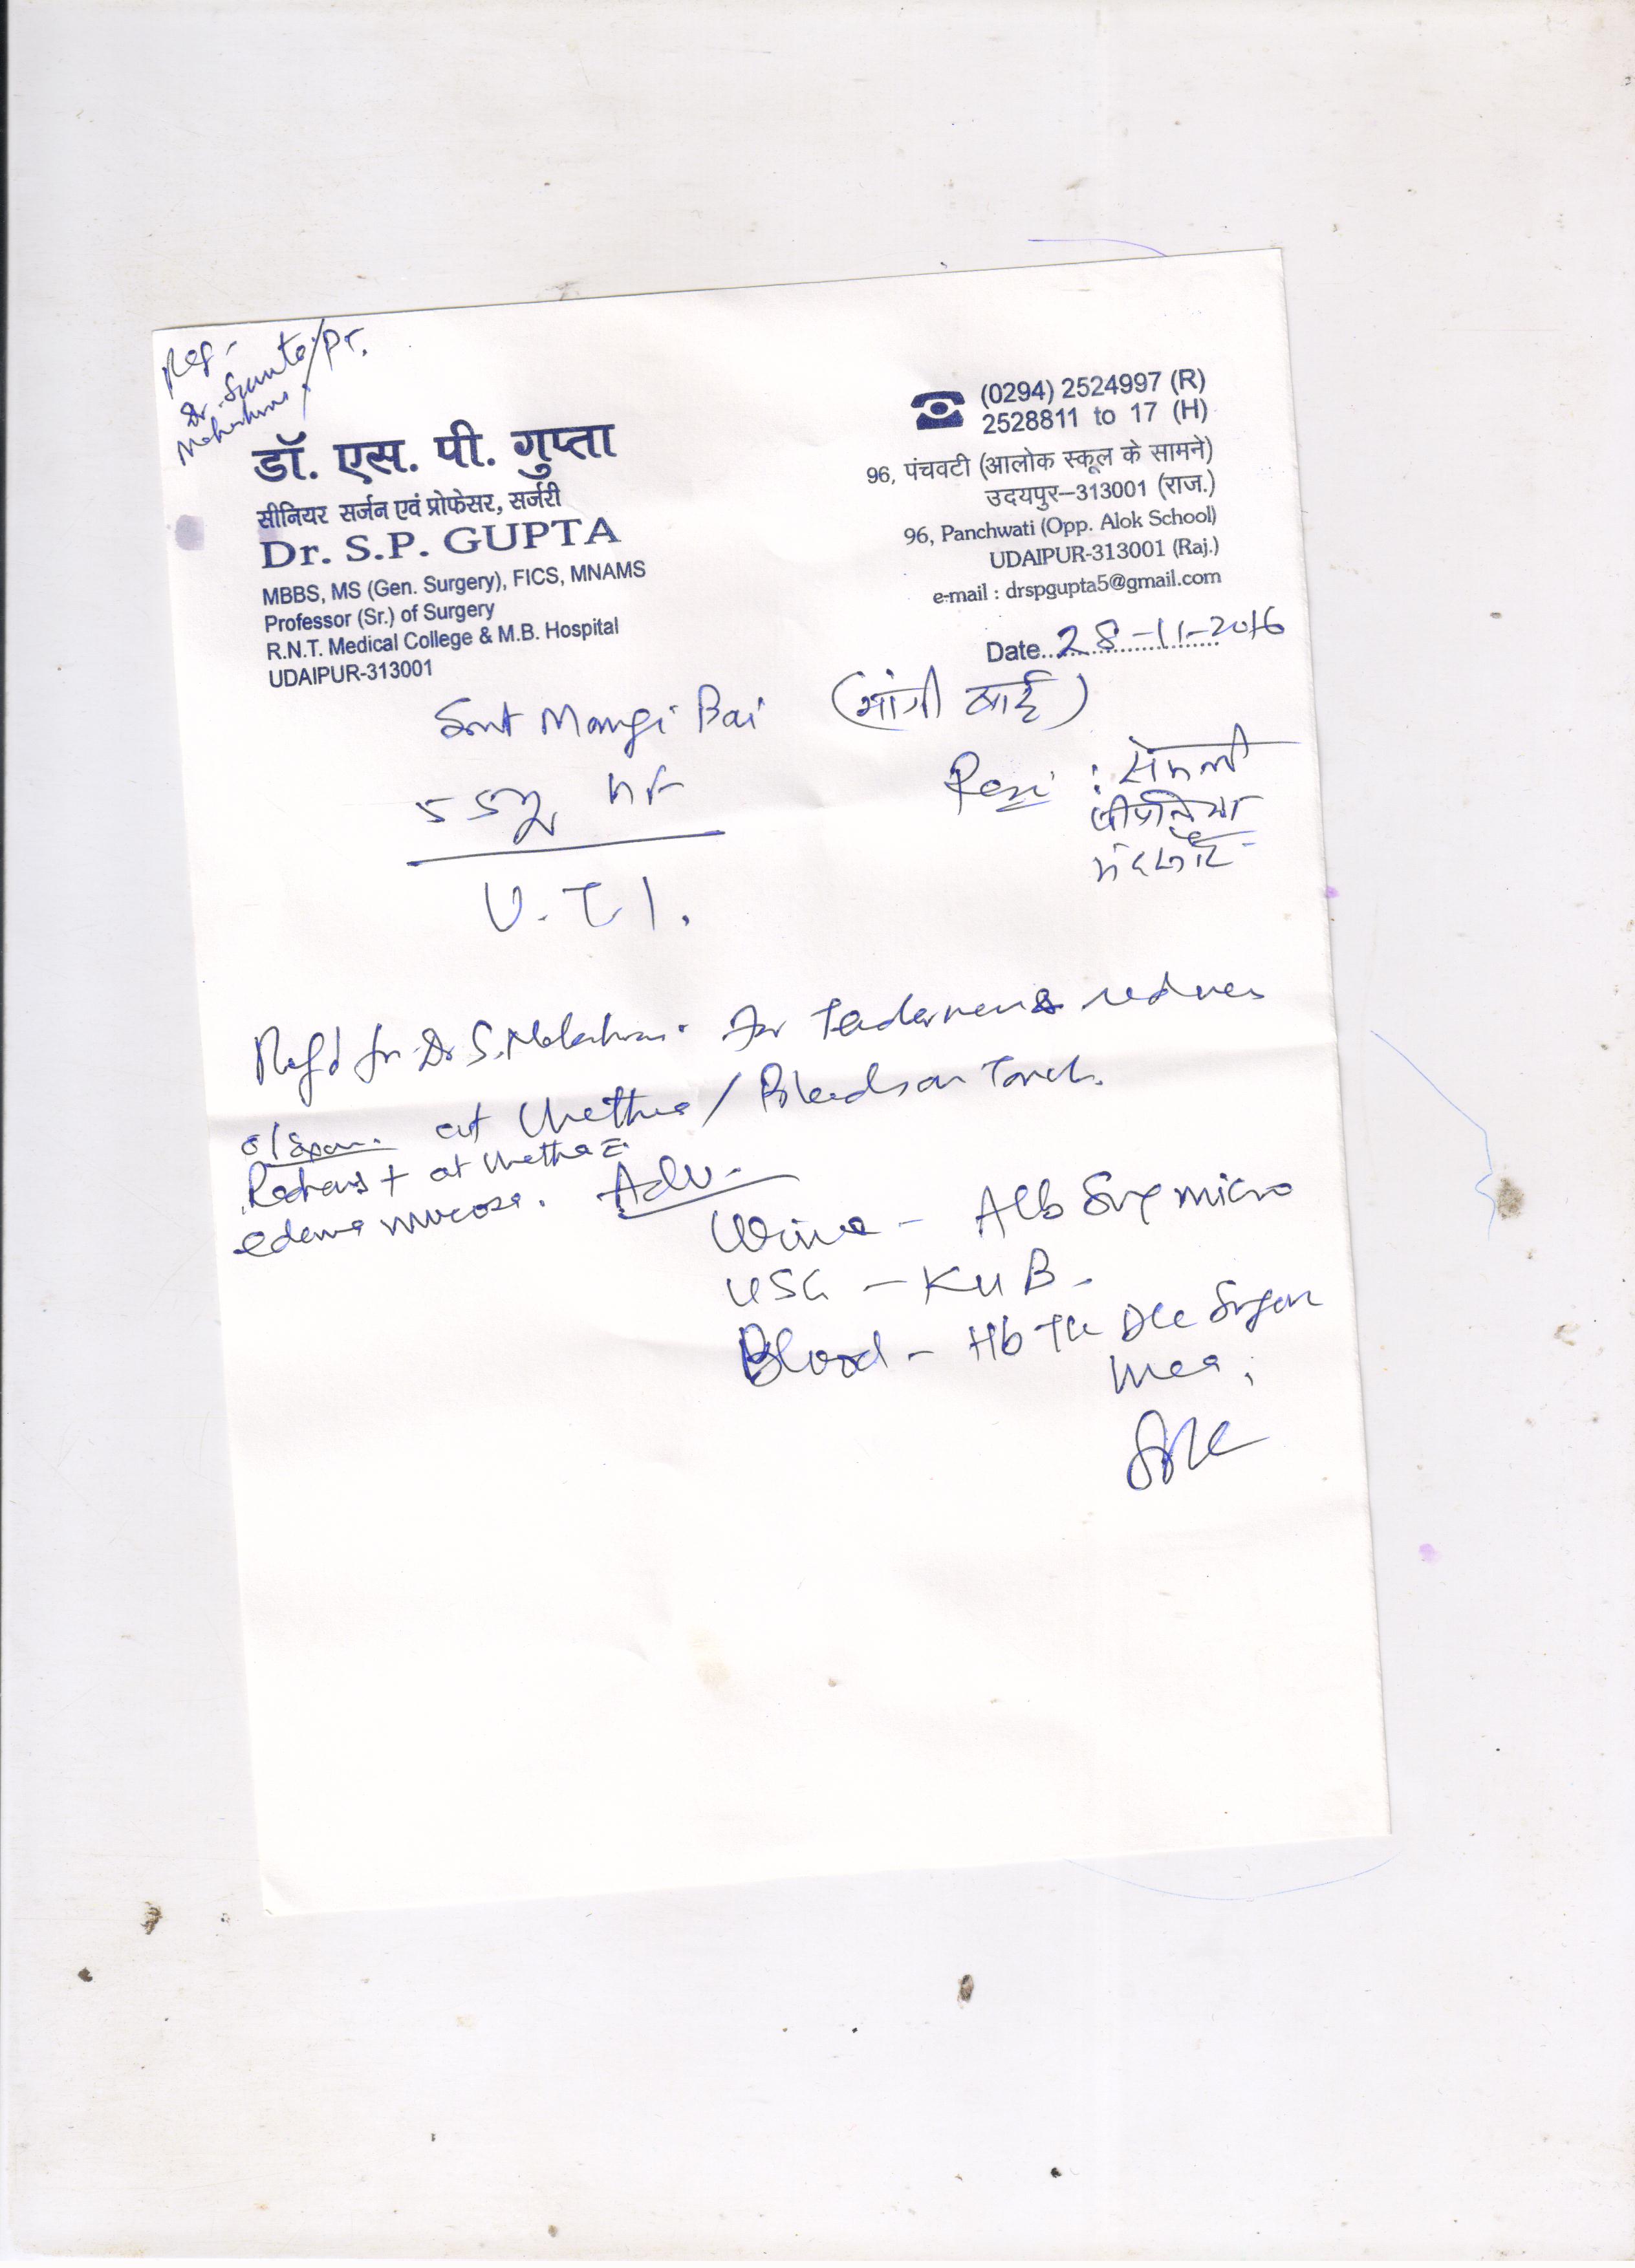 Ref-
Dr. /Pt.
डॉ. एस. पी. गुप्ता
सीनियर सर्जन एवं प्रोफेसर, सर्जरी
Dr. S.P. GUPTA
MBBS, MS (Gen. Surgery), FICS, MNAMS
Professor (Sr.) of Surgery
R.N.T. Medical College & M.B. Hospital
UDAIPUR-313001
(0294) 2524997 (R)
2528811 to 17 (H)
96, पंचवटी (आलोक स्कूल के सामने)
उदयपुर–313001 (राज.)
96, Panchwati (Opp. Alok School)
UDAIPUR-313001 (Raj.)
e-mail : drspgupta5@gmail.com
Date..28-11-2016
Smt Mangi Bai (मांगी बाई)
55y
Resi :
U.T.I.
Refd Dr S. for Tenderness redness
at Urethra / Bleeds on Touch.
o/Exam.
Redness + at Urethra
edema mucosa.
Adv-
Urine - Alb Sug micro
USG - KUB -
Blood - Hb Tlc Dlc Sugar
Urea